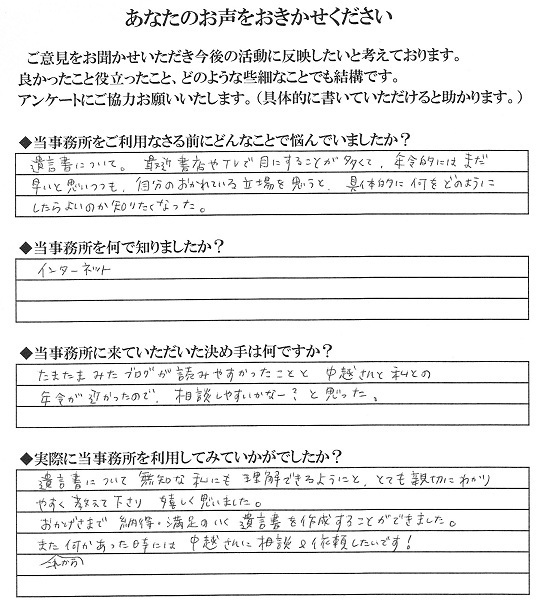 あなたのお声をおきかせください
ご意見をお聞かせいただき今後の活動に反映したいと考えております。
良かったこと役立ったこと、どのような些細なことでも結構です。
アンケートにご協力お願いいたします。（具体的に書いていただけると助かります。）
◆当事務所をご利用なさる前にどんなことで悩んでいましたか？
遺言書について。最近書店やTVで目にすることが多くて、年令的にはまだ
早いと思いつつも、自分のおかれている立場を思うと、具体的に何をどのように
したらよいのか知りたくなった。
◆当事務所を何で知りましたか？
インターネット
◆当事務所に来ていただいた決め手は何ですか？
たまたまみたブログが読みやすかったことと 中越さんと私との
年令が近かったので、相談しやすいかなー？と思った。
◆実際に当事務所を利用してみていかがでしたか？
遺言書について無知な私にも理解できるようにと、とても親切にわかり
やすく教えて下さり 嬉しく思いました。
おかげさまで 納得・満足のいく遺言書を作成することができました。
また何かあった時には 中越さんに相談&依頼したいです！
これから